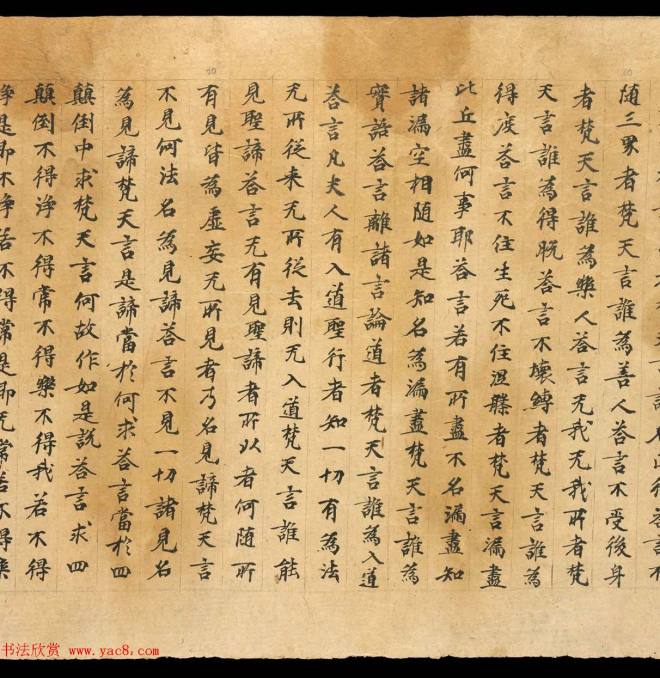 随三界者梵天言誰為善人荅言不受後身
者梵天言誰為樂人荅言无我无我所者梵
天言誰為得脫荅言不壞縛者梵天言誰為
得度荅言不住生死不住涅槃者梵天言漏盡
比丘盡何事耶荅言若有所盡不名漏盡知
諸漏空相随如是知名為漏盡梵天言誰為
實語荅言離諸言論道者梵天言誰為入道
荅言凡夫人有入道聖行者知一切有為法
无所從来无所從去則无入道梵天言誰能
見聖諦荅言无有見聖諦者所以者何随所
有見皆為虛妄无所見者乃名見諦梵天言
不見何法名為見諦荅言不見一切諸見名
為見諦梵天言是諦當於何求荅言當於四
顛倒中求梵天言何故作如是說荅言求四
顛倒不得淨不得常不得樂不得我若不得
淨是即不淨若不得常是即无常若不得樂
书法欣赏 www.yac8.com